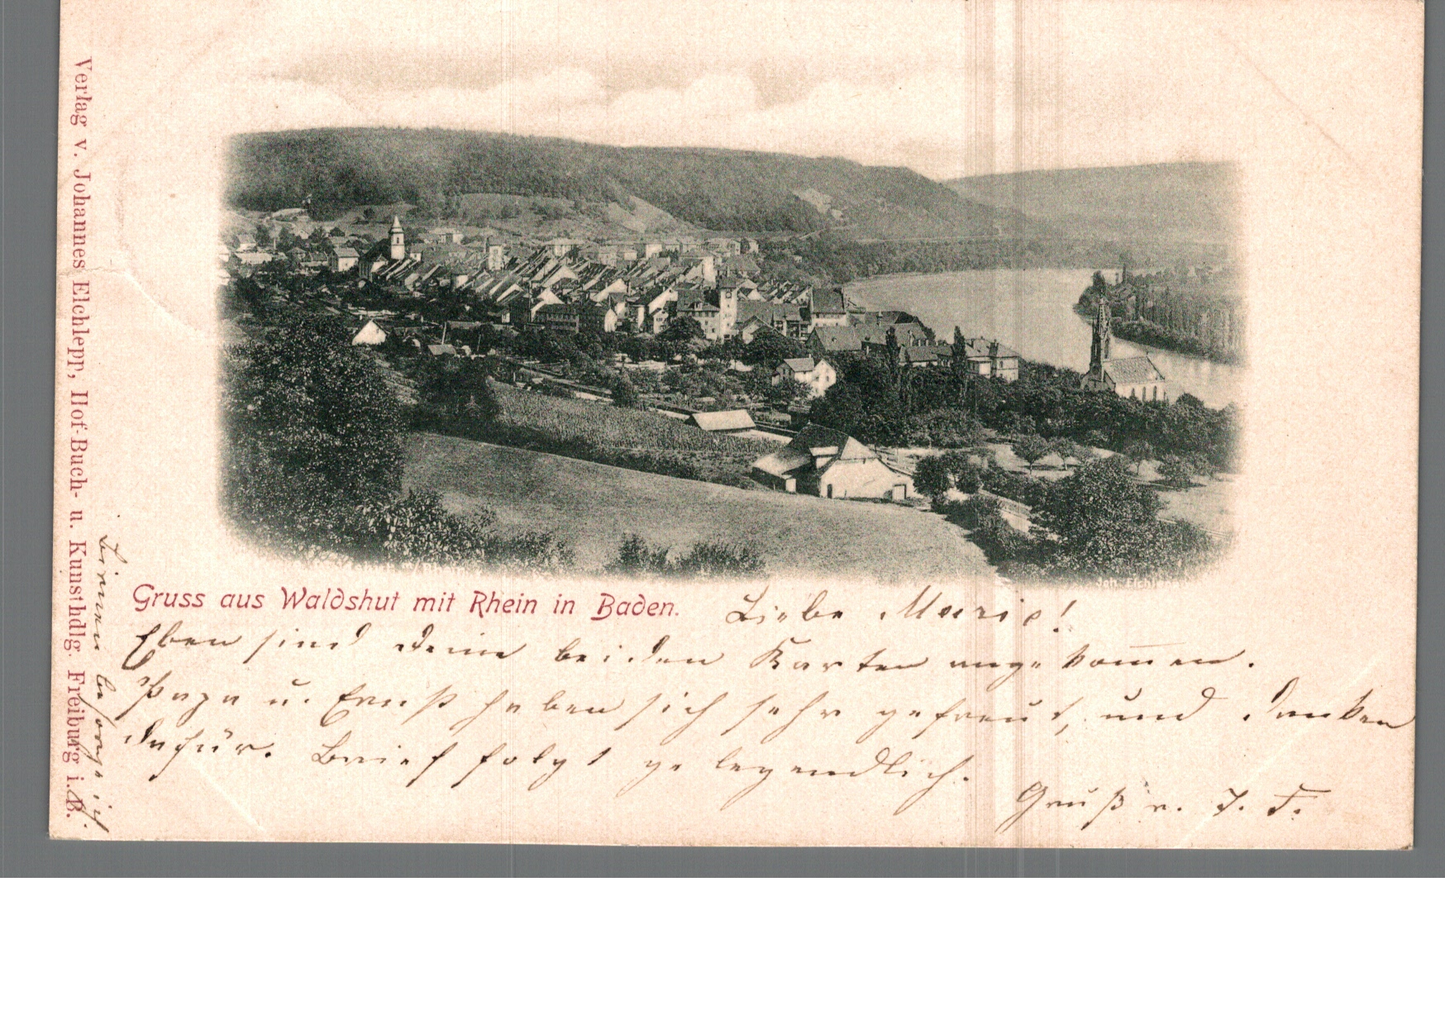 Verlag v. Johannes Elchlepp, Hof-Buch- u. Kunsthdlg. Freiburg i. B.
Joh. Elchlepp
Gruss aus Waldshut mit Rhein in Baden.
Liebe Marie!
Eben sind deine beiden Karten angekommen.
Papa u. Ernst haben sich sehr gefreut, und danken
dafür. Brief folgt gelegendlich.
Gruß v. J. F.
besorge ich